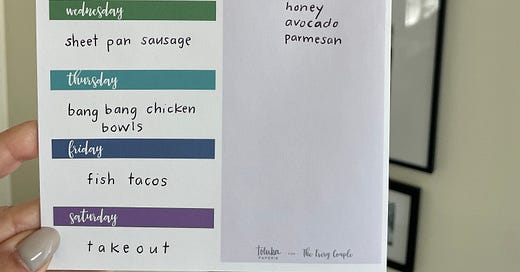 wednesday
sheet pan sausage
thursday
bang bang chicken
bowls
friday
fish tacos
saturday
takeout
honey
avocado
parmesan
toluka
PAPERIE
The Every Couple